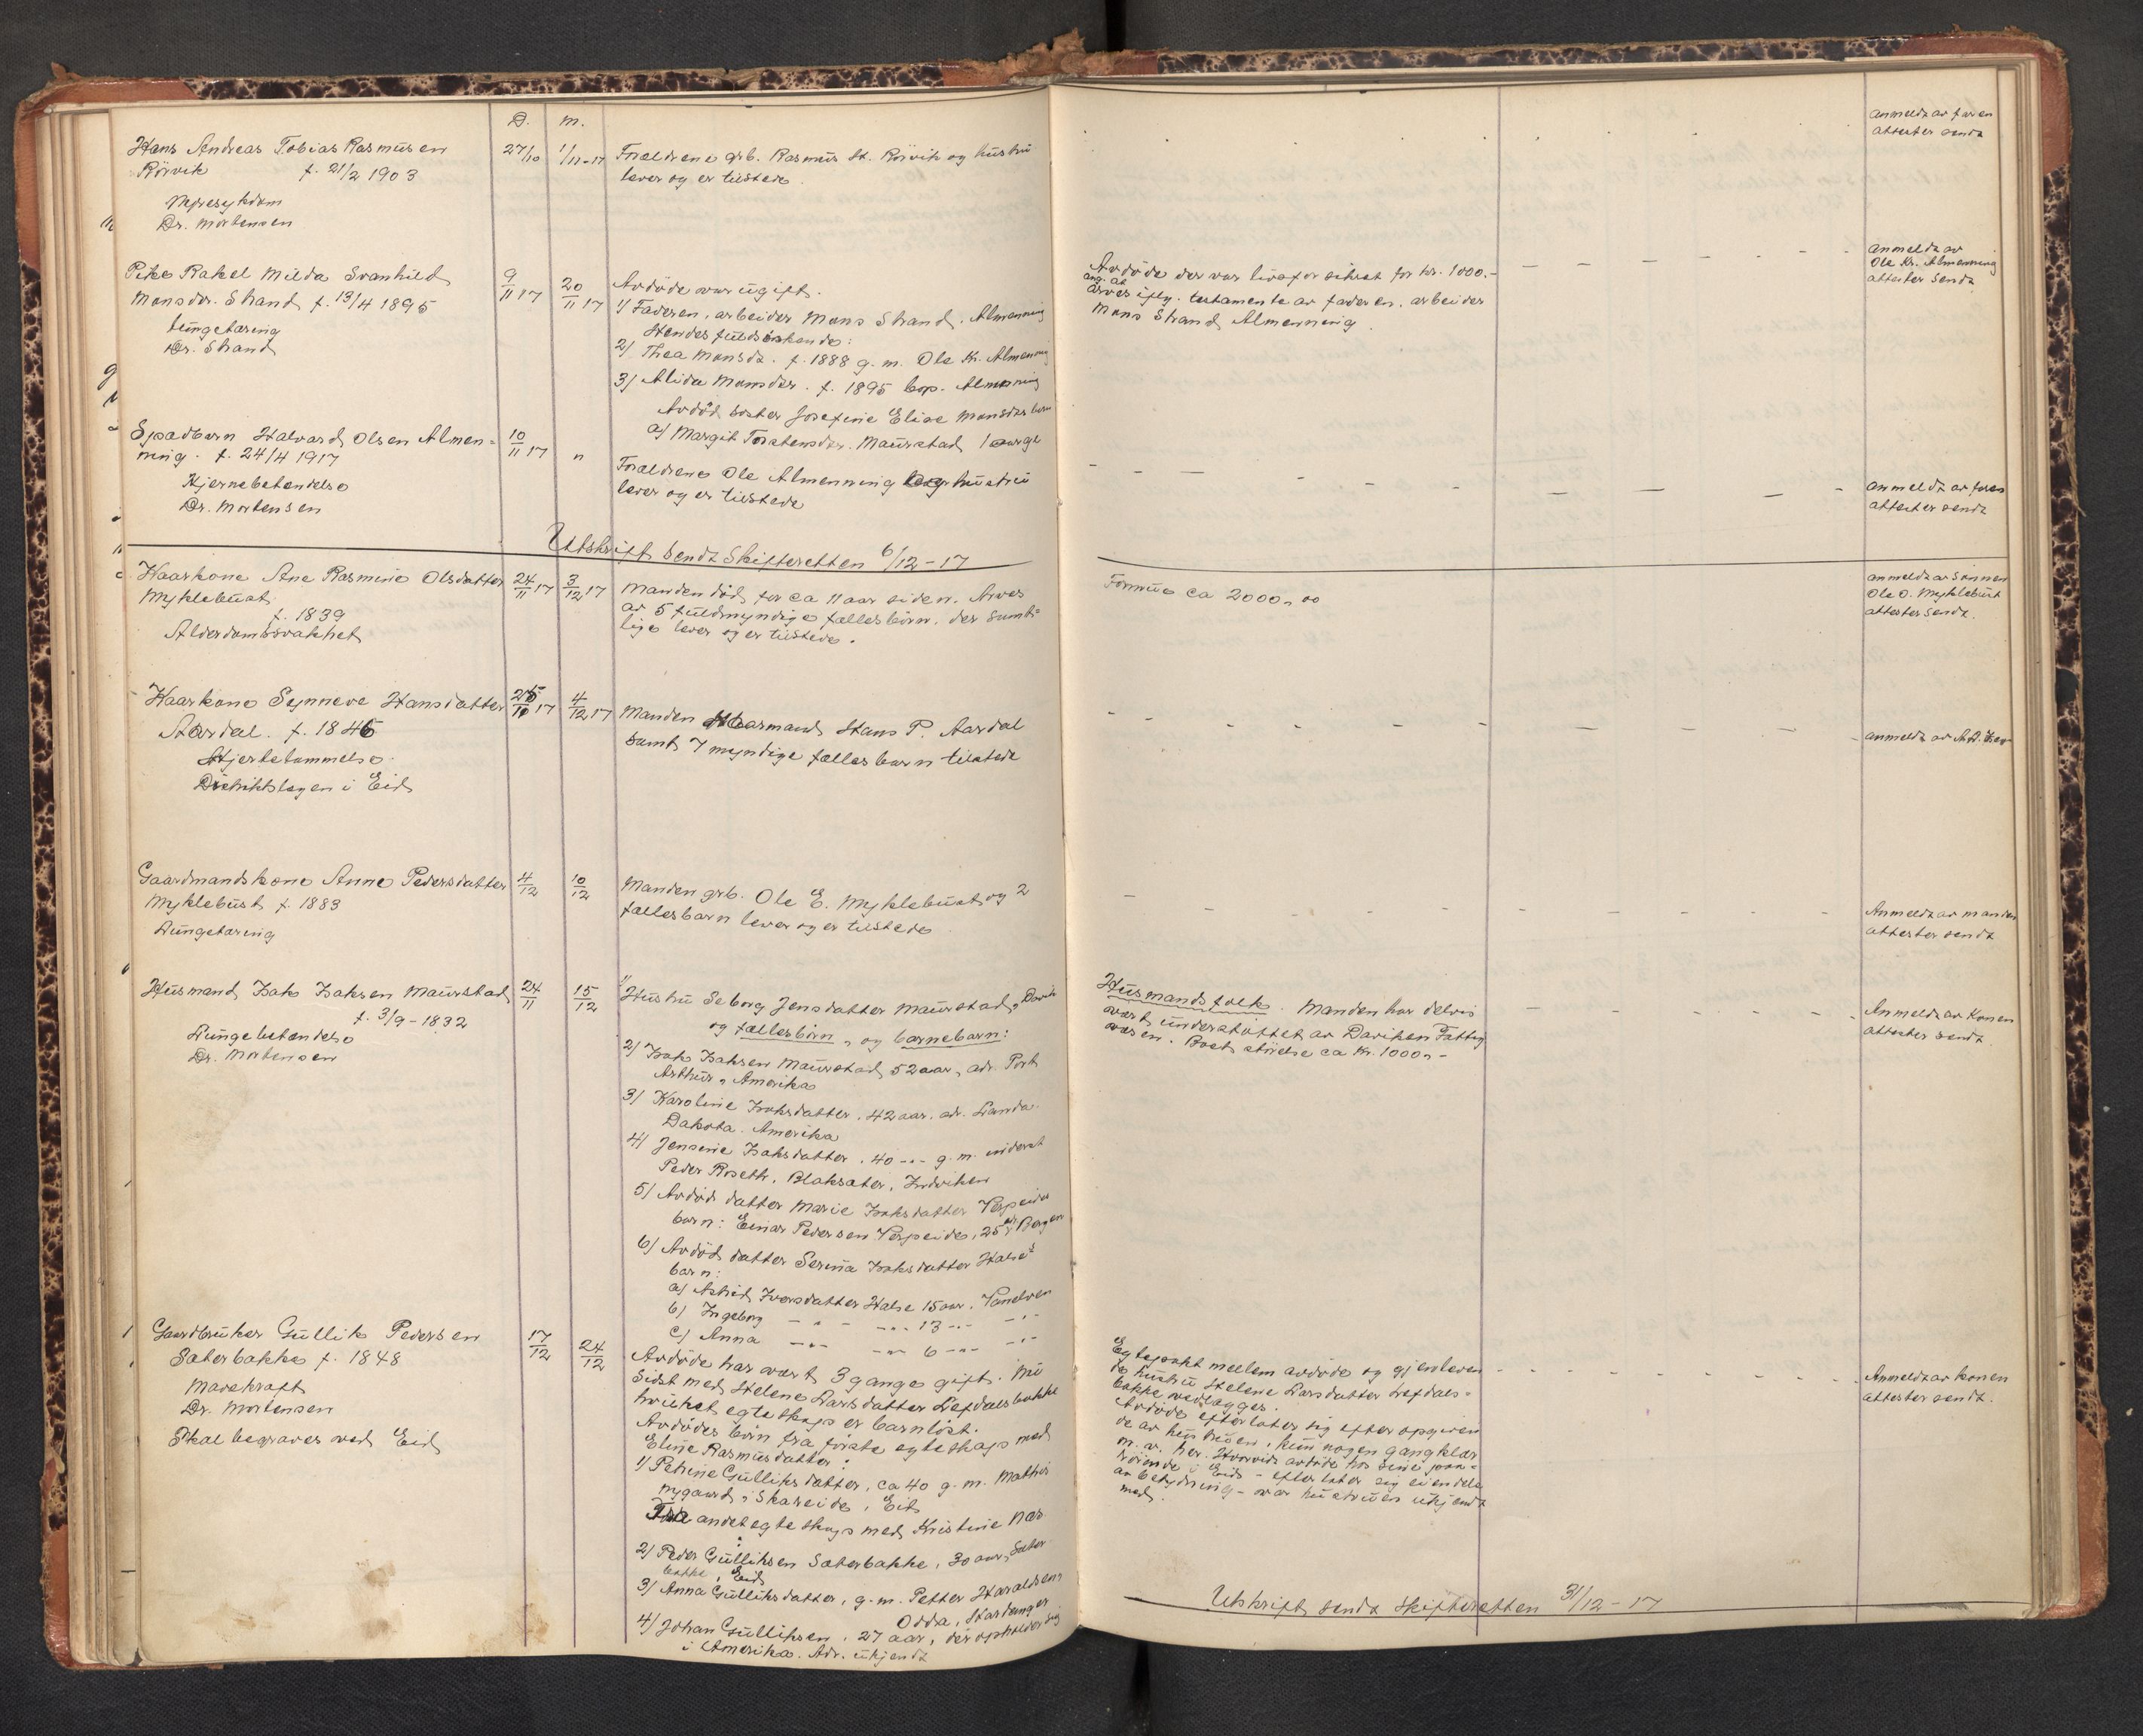 D. m.
Hans Andreas Tobias Rasmusen 27/10 1/11-17 Forældrene grb. Rasmus H. Rörvik og hustru
Rörvik f. 21/2 1903 lever og er tilstede.
Dr. Mortensen
anmeldt av faren
attester sendt
Pike Rakel Milda Svanhild 9/11 17 20/11 17 Avdöde var ugift.
Monsdr. Strand f. 13/4 1895 1) Faderen, arbeider Mons Strand. Almenning
tungetæring Hendes fuldsöskende:
Dr. Strand 2) Thea Monsdr. f. 1888 g.m. Ole Kr. Almenning
3) Alida Monsdr. f. 1895 bop. Almenning
Avdöd söster Josefine Elise Monsdrs barn
a) Margit Torstensdr. Maurstad 1 aar gl
Avdöde der var livsforsikret for kr. 1000.-
ang. at
arves iflg. testamente av faderen, arbeider
Mons Strand, Almenning.
anmeldt av
Ole Kr. Almenning
attester sendt
Spædbarn Halvard Olsen Almen= 10/11 17 " Forældrene Ole Almenning og hustru
ning. f. 24/4 1917 lever og er tilstede
Hjernebetændelse
Dr. Mortensen
anmeldt av faren
attester sendt
Utskrift sendt Skifteretten 6/12-17
Kaarkone Ane Rasmine Olsdatter 24/11 17 3/12 17 Manden död for ca 11 aar siden. Arves
Myklebust av 5 fuldmyndige fællesbörn, der samt=
f. 1839 lige lever og er tilstede.
Alderdomssvakhet
Formue ca 2000,00
anmeldt av sönnen
Ole O. Myklebust
attester sendt.
Kaarkone Synneve Hansdatter 4/12 17 Manden Kaarmand Hans P. Aardal
Aardal. f. 1846 samt 7 myndige fælles barn tilstede
Hjertelammelse.
Distriktslægen i Eid
anmeldt av
Gaardmandskone Anne Pedersdatter 4/12 10/12 Manden grb. Ole E. Myklebust og 2
Myklebust f. 1883 fællesbarn lever og er tilstede
Lungetæring
Anmeldt av manden
attester sendt
Husmand Isak Isaksen Maurstad 24/11 15/12 1) Hustru Seborg Jensdatter Maurstad, Davik
f. 3/9-1832 og fællesbörn, og barnebarn:
Lungebetændelse 2) Isak Isaksen Maurstad, 52 aar, adr. Port
Dr. Mortensen Arthur, Amerika
3) Karoline Isaksdatter, 42 aar. adr. Landa.
Dakota. Amerika
4) Jensine Isaksdatter, 40 -"- g.m. inderst
Peder Roseth, Blaksæter, Indviken
5) Avdöd datter Marie Isaksdatter Verpeides
barn: Einar Pedersen Verpeide, 25 adr. Bergen
6) Avdöd datter Serina Isaksdatter Halse's
barn:
a) Astrid Iversdatter Halse 15 aar. Vanelven
b) Ingeborg -"- -"- 13 -"- -"-
c) Anna -"- -"- 6 -"- -"-
Husmandsfolk. Manden har delvis
vært understöttet av Daviken Fattig
væsen. Boets störelse ca kr. 1000,-
Anmeldt av Konen
attester sendt.
Gaardbruker Gullik Pedersen 17/12 24/12 Avdöde har vært 3 gange gift. Nu
Sæterbakke f. 1848 sidst med Helene Larsdatter Lefdalsbakke
Mavekræft hvilket egteskap er barnlöst.
Dr. Mortensen Avdödes börn fra förste egteskap med
Skal begraves ved Eid Eline Rasmusdatter:
1) Petrine Gulliksdatter, ca 40 g.m. Mathis
Nygaard, Skareide, Eid
Fra andet egteskap med Kristine Næs
:
2) Peder Gulliksen Sæterbakke, 30 aar, Sæter
bakke, Eid
3) Anna Gulliksdatter, g.m. Petter Haraldsen,
Odda, Hardanger
4) Johan Gulliksen, 27 aar, der opholder sig
i Amerika. Adr. ukjendt
Egtepakt mellem avdöde og gjenleven
de hustru Helene Larsdatter Lefdals=
bakke vedlægges.
Avdöde efterlater sig efter opgiven
de av hustruen, kun nogen gangklær
m.v. her. Hvorvidt avdöde hos sine paa=
rörende i Eid - efterlater sig eiendele
av betydning - var hustruen ukjendt
med.
Anmeldt av konen
attester sendt.
Utskrift sendt skifteretten 31/12-17